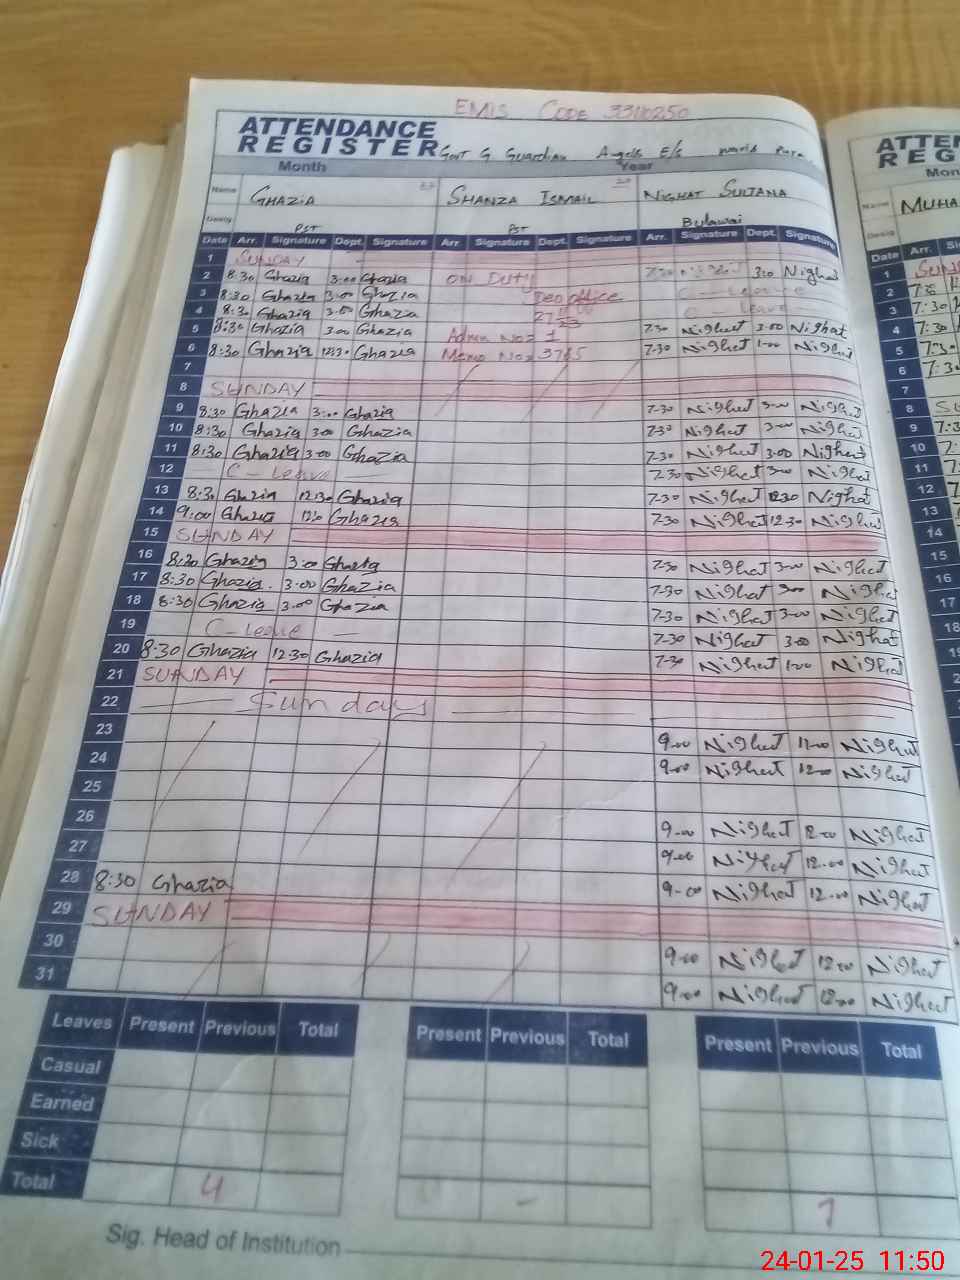 EMIS Code 33110250
ATTENDANCE
REGISTER Govt G Guardian Angels E/S
Month Year
Name GHAZIA SHANZA ISMAIL NIGHAT SULTANA
Desig PST PST Bulawai
Date Arr. Signature Dept. Signature Arr. Signature Dept. Signature Arr. Signature Dept. Signature
1 SUNDAY
2 8:30 Ghazia 3:00 Ghazia ON DUTY 7.30 Nighat 3.00 Nighat
3 8:30 Ghazia 3:00 Ghazia DEO office C - Leave
4 8:30 Ghazia 3.00 Ghazia C - Leave
5 8:30 Ghazia 3:00 Ghazia Admn No= 1 7.30 Nighat 3.00 Nighat
6 8:30 Ghazia 12:30 Ghazia Memo No= 3765 7.30 Nighat 1.00 Nighat
7
8 SUNDAY
9 8:30 Ghazia 3:00 Ghazia 7.30 Nighat 3.00 Nighat
10 8:30 Ghazia 3.00 Ghazia 7.30 Nighat 3.00 Nighat
11 8:30 Ghazia 3.00 Ghazia 7.30 Nighat 3.00 Nighat
12 C - Leave 7.30 Nighat 3.00 Nighat
13 8:30 Ghazia 12:30 Ghazia 7.30 Nighat 12.30 Nighat
14 9:00 Ghazia 12:30 Ghazia 7.30 Nighat 12.30 Nighat
15 SUNDAY
16 8:30 Ghazia 3:00 Ghazia 7.30 Nighat 3.00 Nighat
17 8:30 Ghazia 3.00 Ghazia 7.30 Nighat 3.00 Nighat
18 8:30 Ghazia 3.00 Ghazia 7.30 Nighat 3.00 Nighat
19 C - Leave — 7.30 Nighat 3.00 Nighat
20 8:30 Ghazia 12:30 Ghazia 7.30 Nighat 1.00 Nighat
21 SUNDAY
22 — Sunday —
23 9.00 Nighat 11.00 Nighat
24 9.00 Nighat 12.00 Nighat
25
26 9.00 Nighat 12.00 Nighat
27 9.00 Nighat 12.00 Nighat
28 8:30 Ghazia 9.00 Nighat 12.00 Nighat
29 SUNDAY
30 9.00 Nighat 12.00 Nighat
31 9.00 Nighat 12.00 Nighat
Leaves Present Previous Total Present Previous Total Present Previous Total
Casual
Earned
Sick
Total 4 - 7
Sig. Head of Institution
ATTEN
REG
Mon
Name MUHA
Desig
Date Arr.
1 SUN
2
3 7:30
4 7:30
5 7:30
6 7:30
7
8
9
10
11
12
13
14
15
16
17
18
24-01-25 11:50